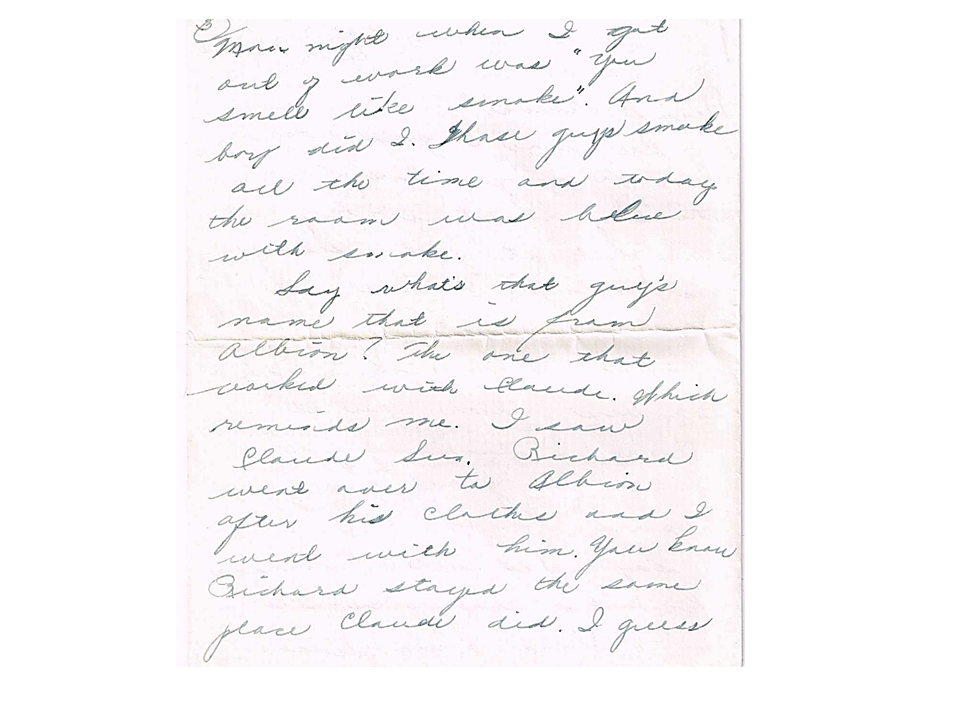 3)
Mon. night when I got
out of work was "You
smell like smoke". And
boy did I. Those guys smoke
all the time and today
the room was blue
with smoke.
Say what's that guy's
name that is from
Albion? The one that
worked with Claude. Which
reminds me. I saw
Claude Sun. Richard
went over to Albion
after his clothes and I
went with him. You know
Richard stayed the same
place Claude did. I guess